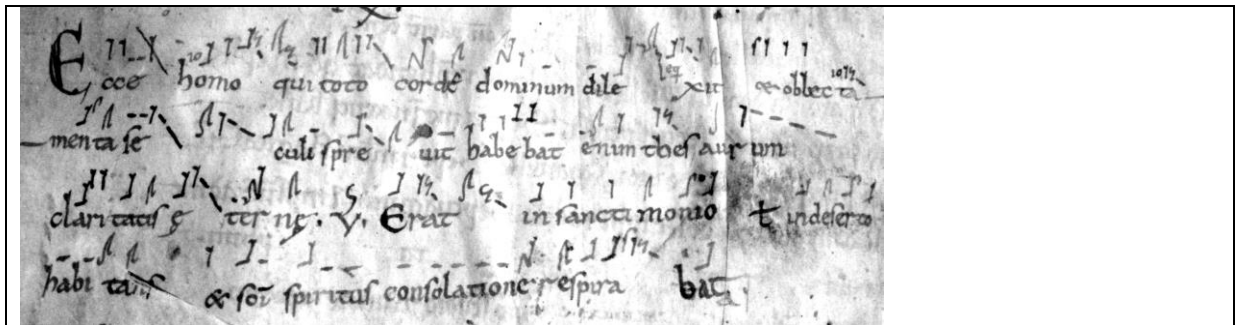 Ecce homo qui toto corde dominum dilexit & oblecta
menta se culi spreuit habebat enim thesaurum
claritatis ęternę. V. Erat in sanctimonio t indeserto
habitans & sci spiritus consolatione respirabat